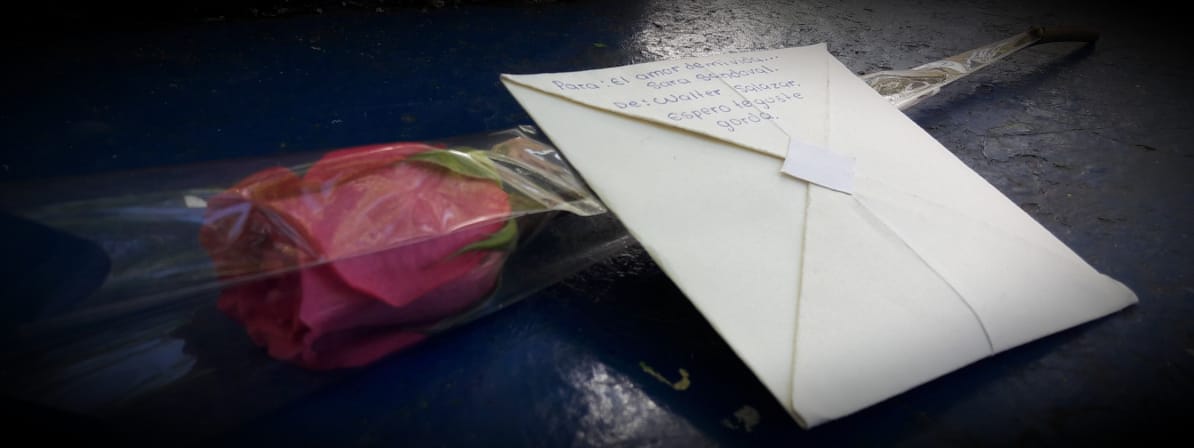 Para: El amor de mi vida...
Sara Sandoval.
De: Walter Salazar.
Espero te guste
gorda.